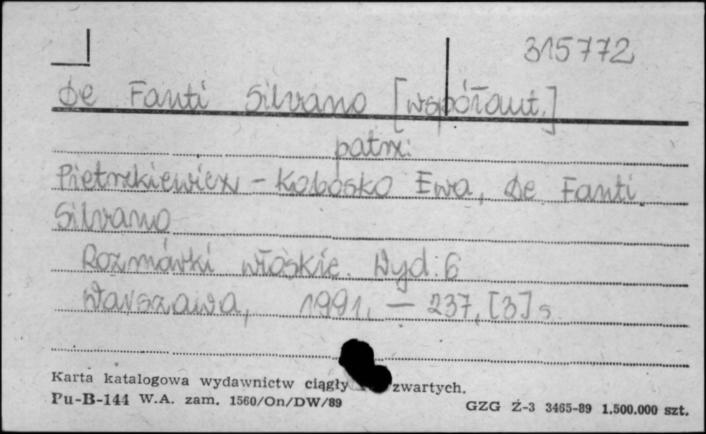 315772
De Fanti Silvano [współaut.]
patrz:
Pietrzkiewicz - Kobosko Ewa, De Fanti
Silvano
Rozmówki włoskie. Wyd. 6
Warszawa, 1991. — 237, [3] s
Karta katalogowa wydawnictw ciągły zwartych.
Pu-B-144 W.A. zam. 1560/On/DW/89
GZG Ż-3 3465-89 1.500.000 szt.